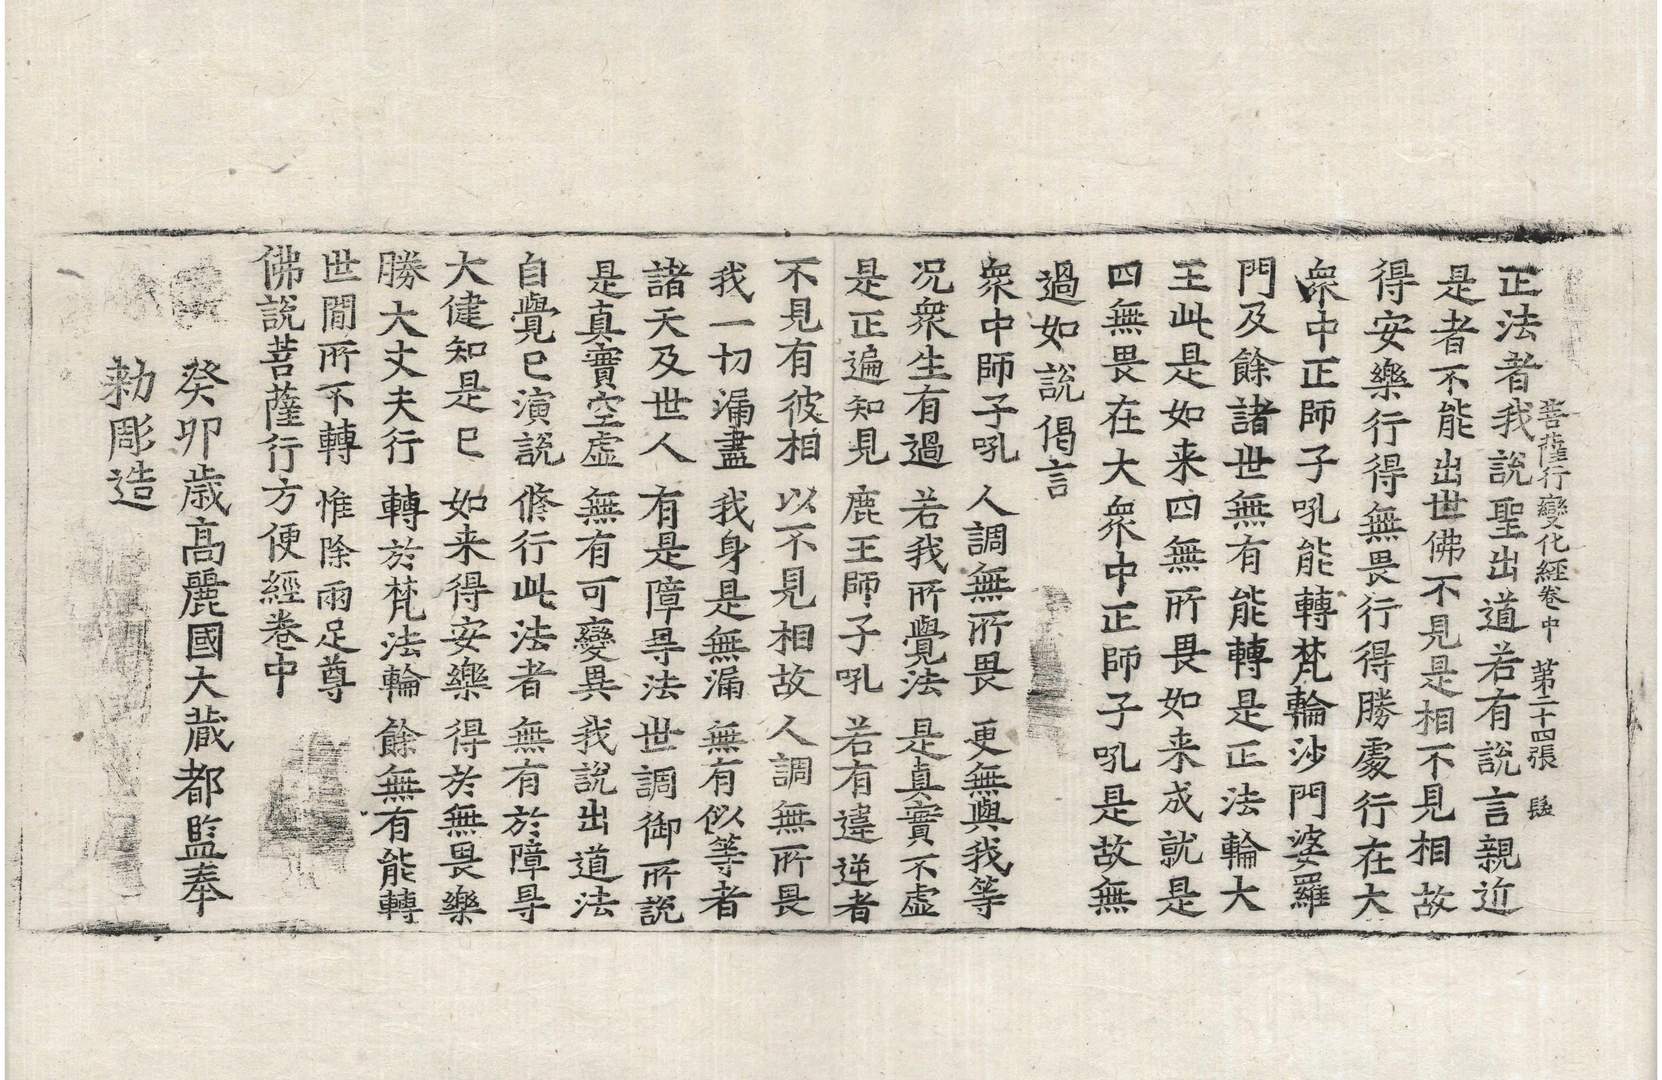 菩薩行變化經卷中 第二十四張 髲
正法者我說聖出道若有說言親近
是者不能出世佛不見是相不見相故
得安樂行得無畏行得勝處行在大
衆中正師子吼能轉梵輪沙門婆羅
門及餘諸世無有能轉是正法輪大
王此是如来四無所畏如来成就是
四無畏在大衆中正師子吼是故無
過如說偈言
衆中師子吼 人調無所畏 更無與我等
况衆生有過 若我所覺法 是真實不虛
是正遍知見 鹿王師子吼 若有違逆者
不見有彼相 以不見相故 人調無所畏
我一切漏盡 我身是無漏 無有似等者
諸天及世人 有是障㝵法 世調御所說
是真實空虛 無有可變異 我說出道法
自覺已演說 脩行此法者 無有於障㝵
大健知是已 如来得安樂 得於無畏樂
勝大丈夫行 轉於梵法輪 餘無有能轉
世間所不轉 惟除兩足尊
佛說菩薩行方便經卷中
癸卯歲高麗國大藏都監奉
勅彫造